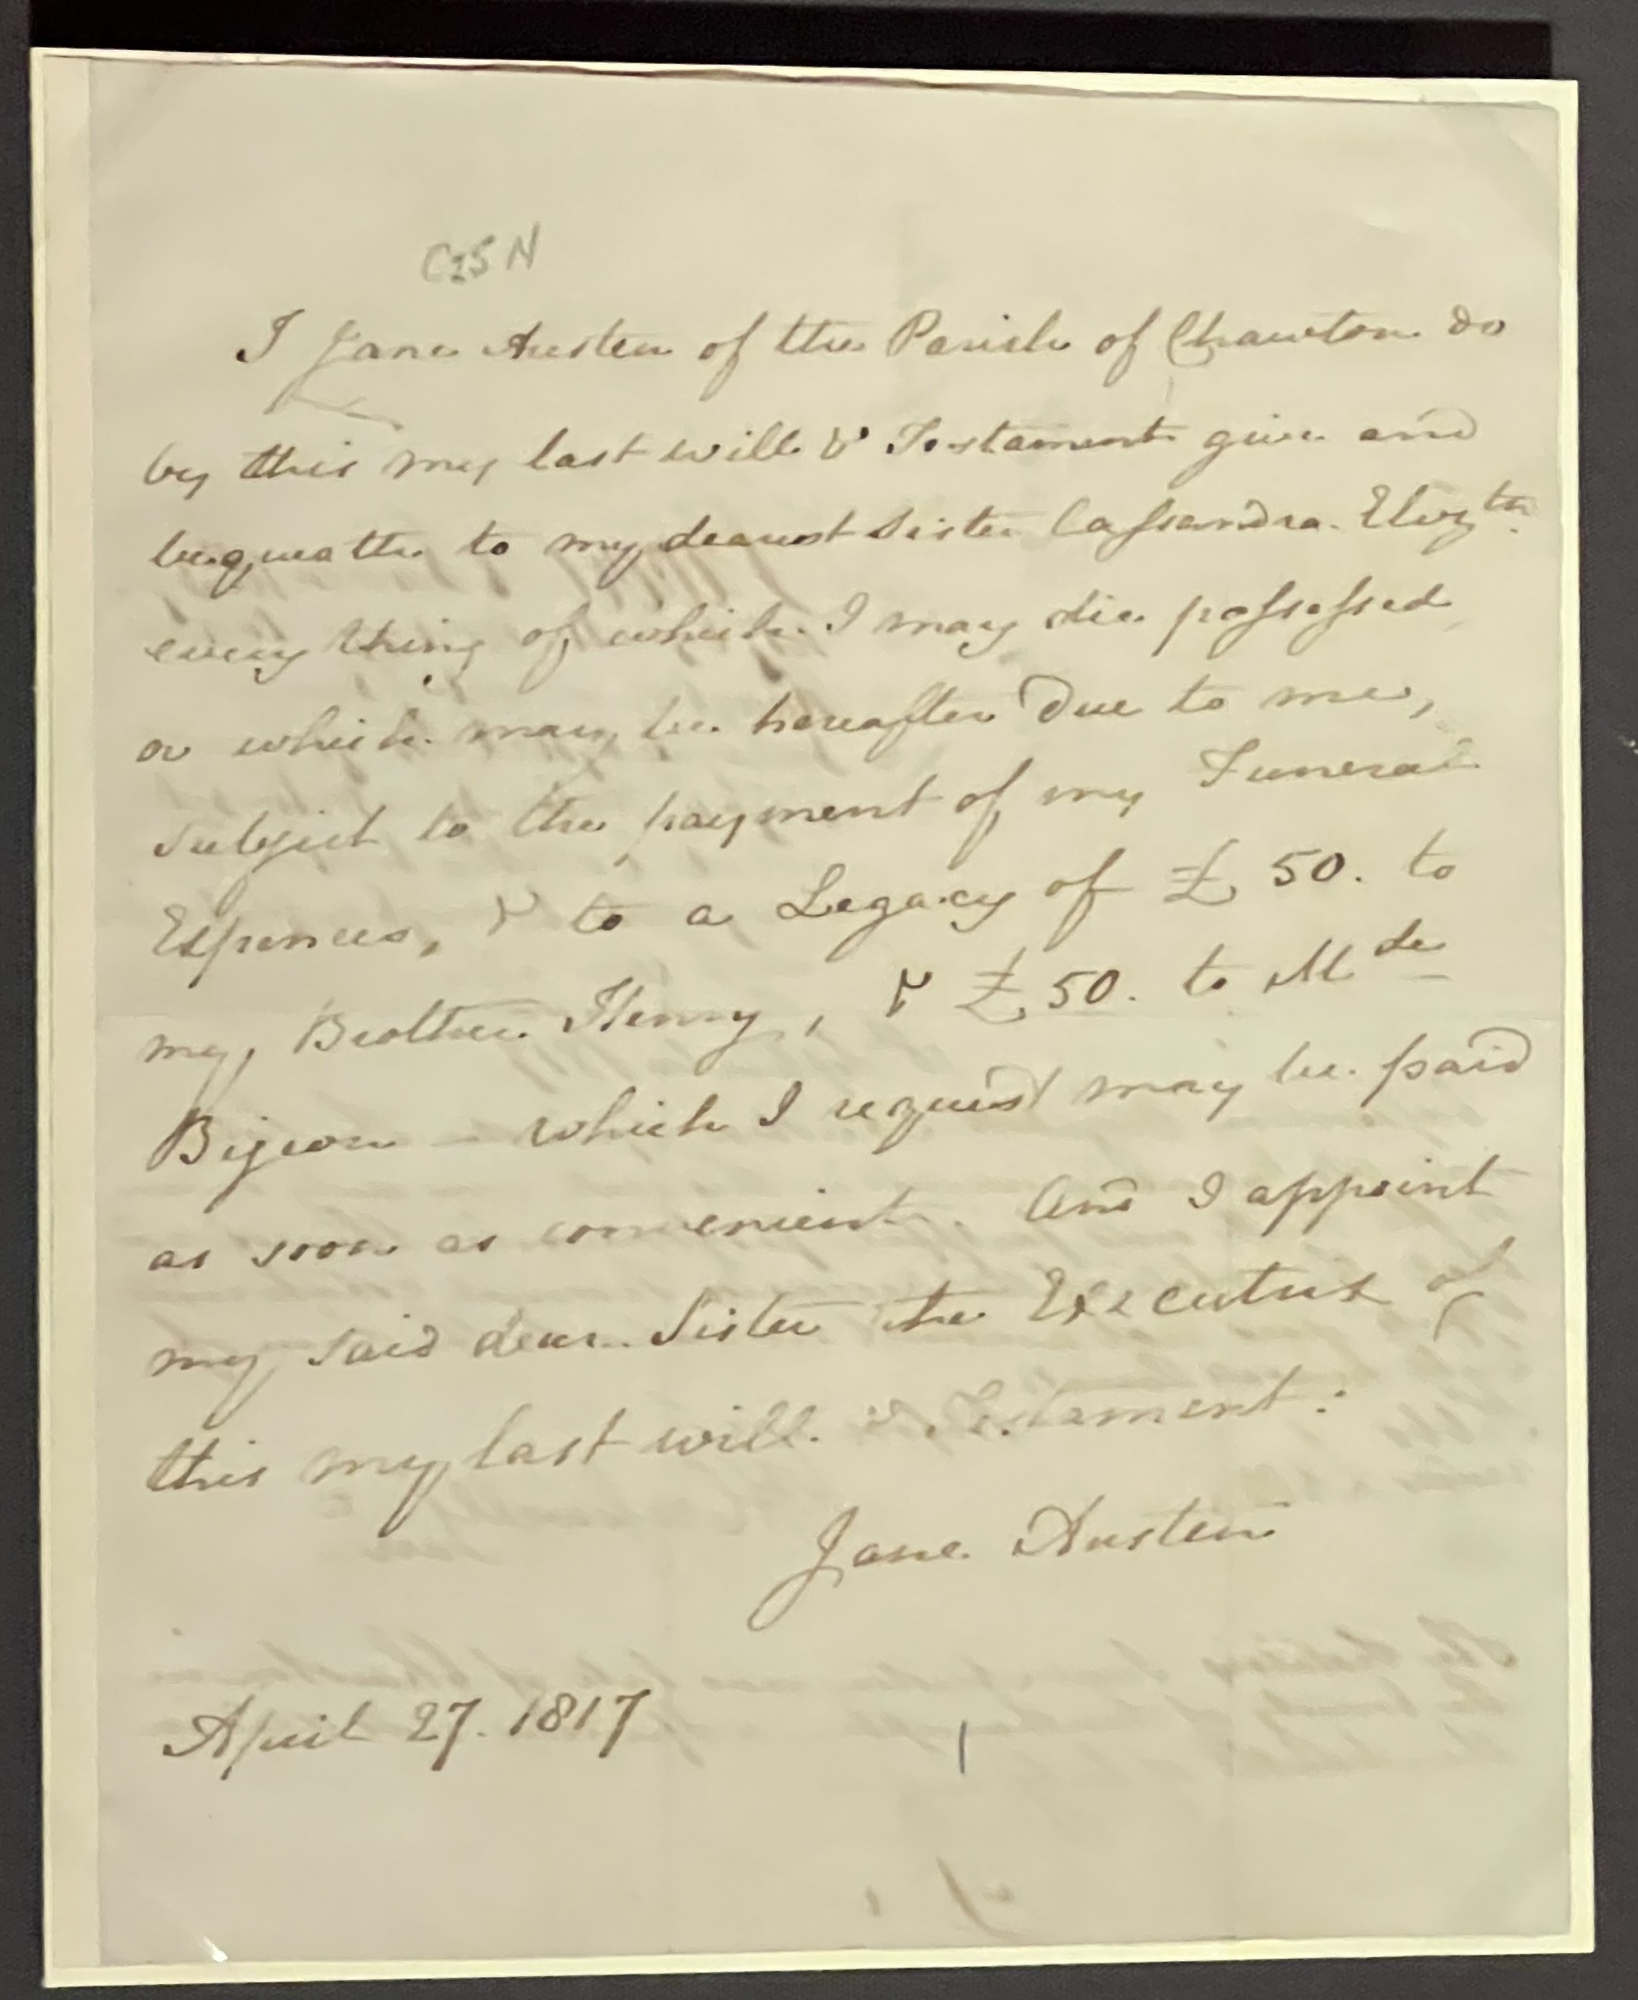 C25N
I Jane Austen of the Parish of Chawton do
by this my last will & Testament give and
bequeathe to my dearest Sister Cassandra Elizth
every thing of which I may die possessed,
or which may be hereafter due to me,
subject to the payment of my Funeral
Expences, & to a Legacy of £50. to
my Brother Henry, & £50. to Mde
Bigeon – which I request may be paid
as soon as convenient. And I appoint
my said dear Sister the Executrix of
this my last will & Testament:
Jane Austen
April 27. 1817